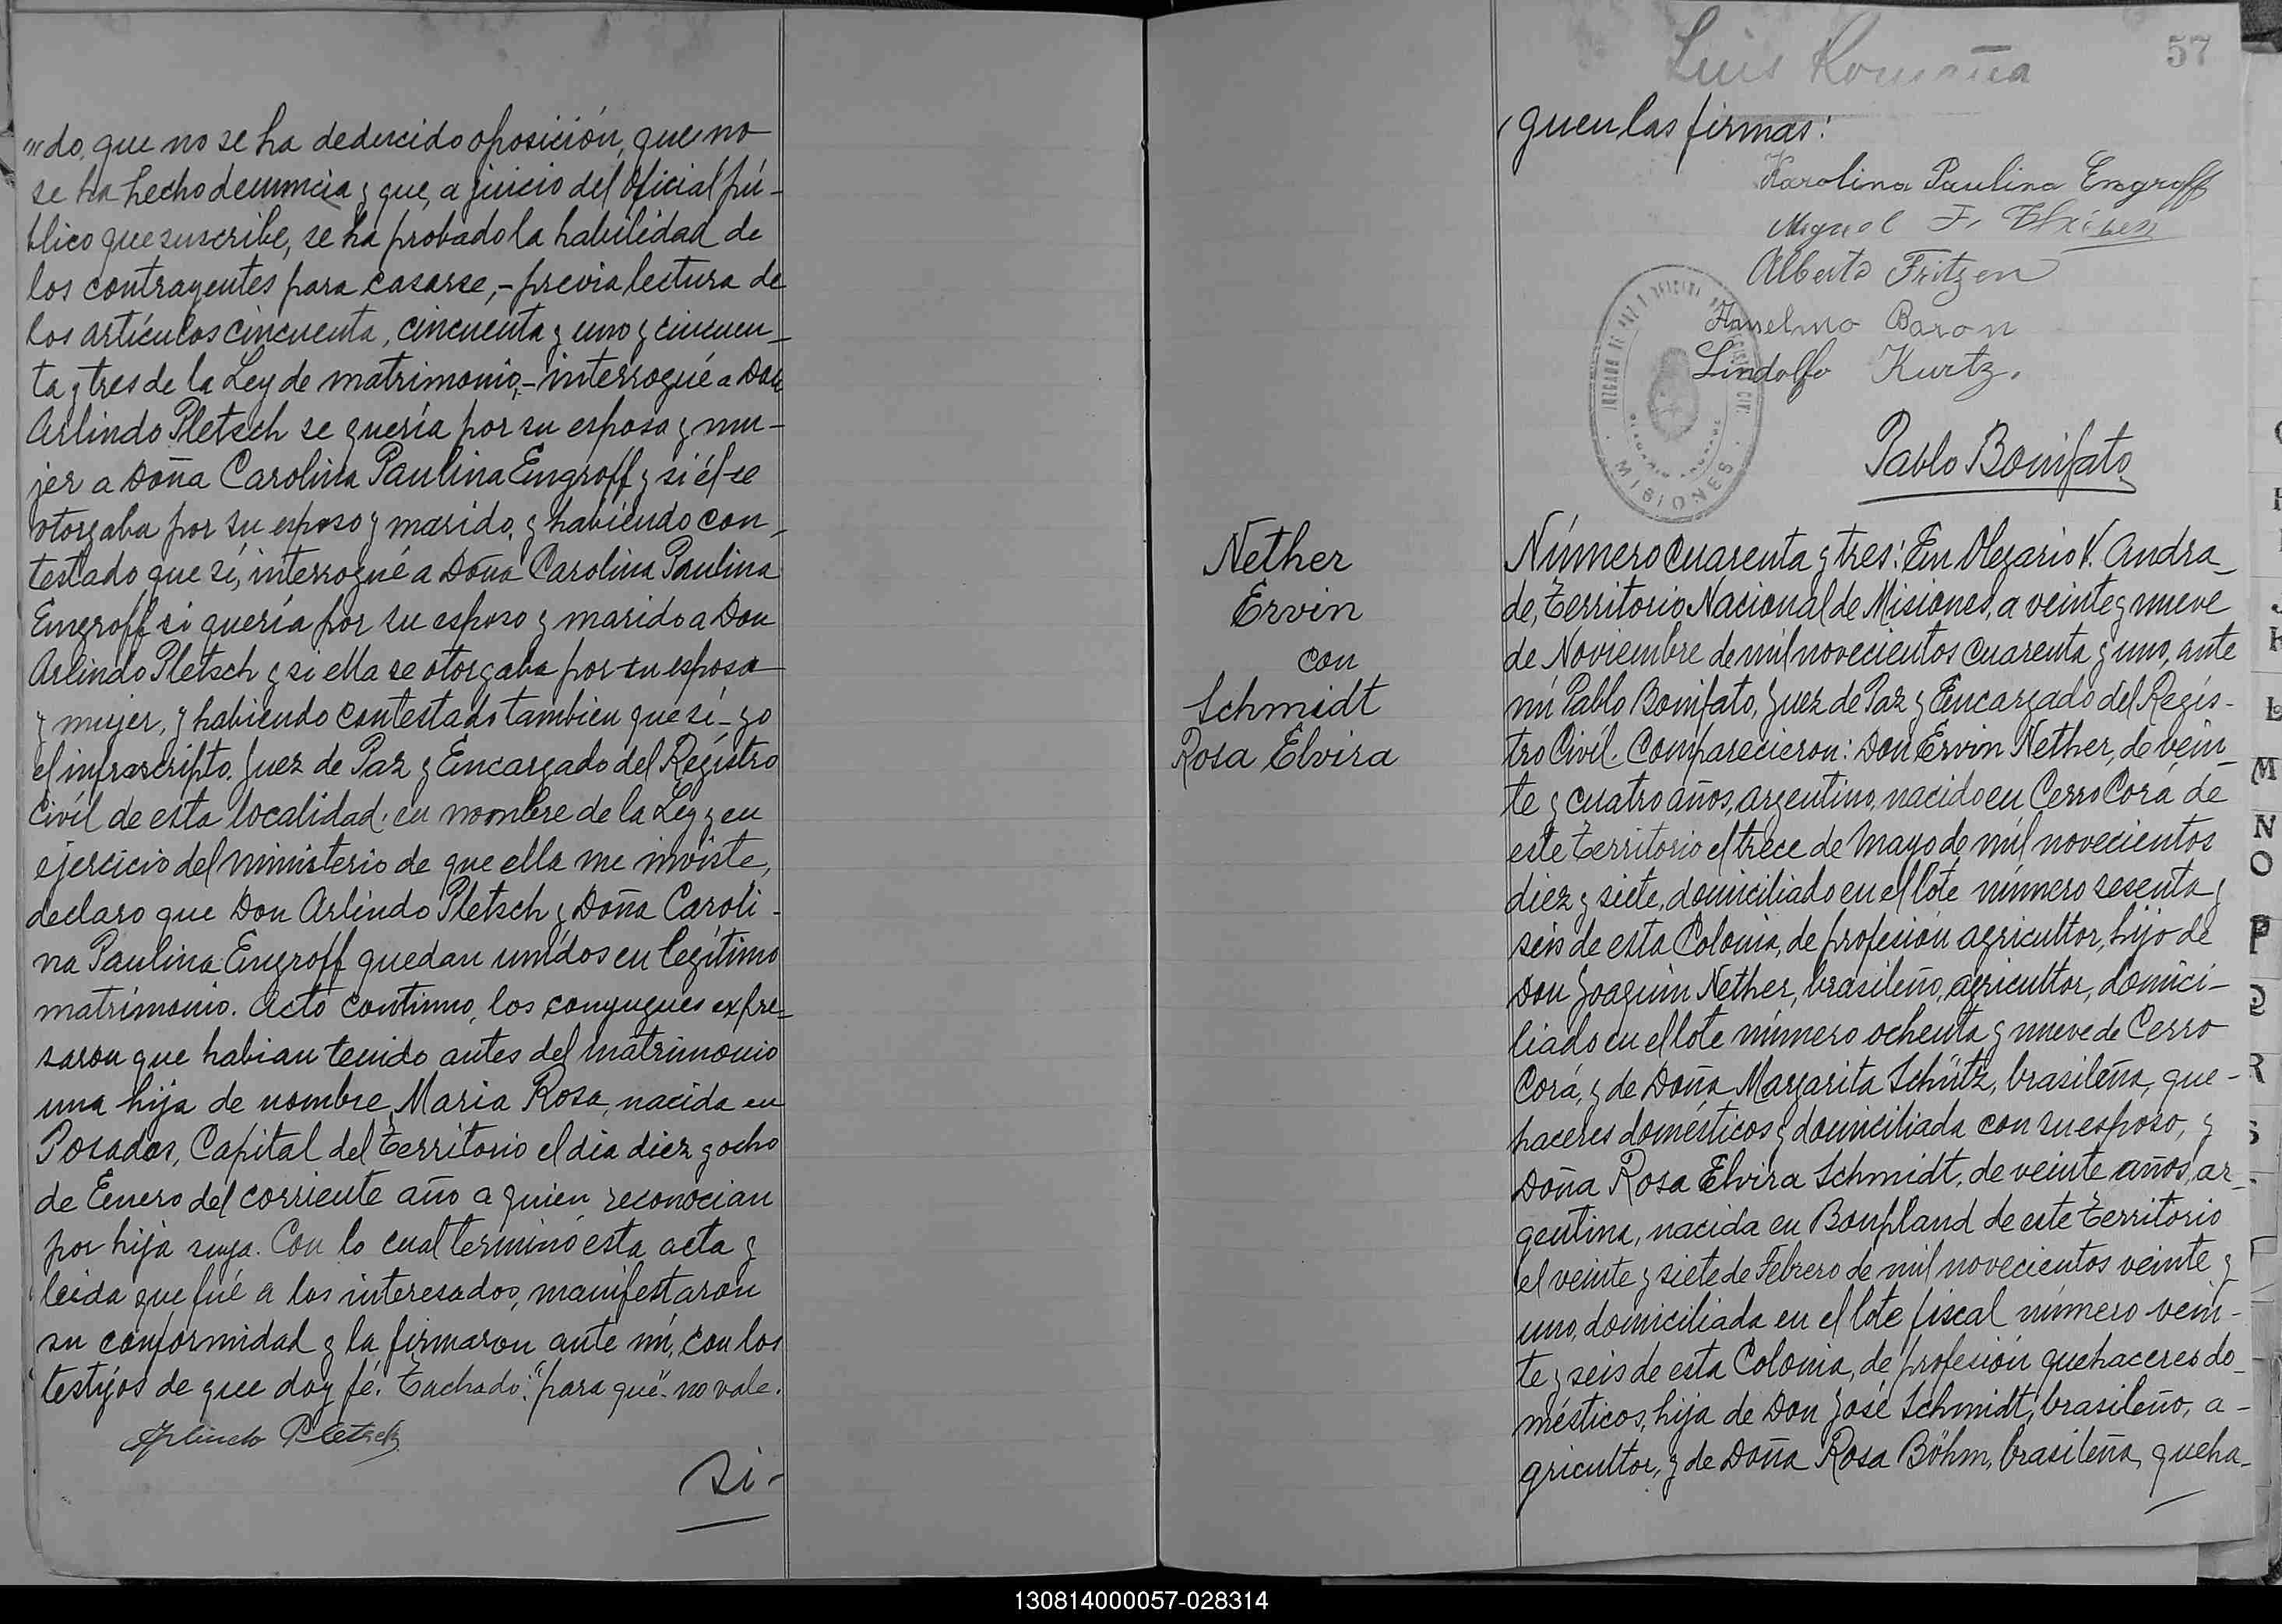 do, que no se ha deducido oposición, que no
se ha hecho denuncia y que, a juicio del Oficial pú-
blico que suscribe, se ha probado la habilidad de
los contrayentes para casarse,- previa lectura de
los artículos cincuenta, cincuenta y uno y cincuen-
ta y tres de la Ley de matrimonio,- interrogué a Don
Arlindo Pletsch se quería por su esposa y mu-
jer a Doña Carolina Paulina Engroff y si él se
otorgaba por su esposo y marido, y habiendo con-
testado que sí, interrogué a Doña Carolina Paulina
Engroff si quería por su esposo y marido a Don
Arlindo Pletsch y si ella se otorgaba por su esposa
y mujer, y habiendo contestado tambien que sí- yo
el infrascripto, Juez de Paz y Encargado del Registro
Civil de esta localidad, en nombre de la Ley y en
ejercicio del ministerio de que ella me inviste,
declaro que Don Arlindo Pletsch y Doña Caroli-
na Paulina Engroff quedan unidos en legítimo
matrimonio. Acto continuo, los conyugues expre-
saron que habian tenido antes del matrimonio
una hija de nombre, Maria Rosa, nacida en
Posadas, Capital del Territorio el dia diez y ocho
de Enero del corriente año a quien reconocian
por hija suya. Con lo cual terminó esta acta y
leida que fué a los interesados, manifestaron
su conformidad y la firmaron ante mí, con los
testigos de que doy fé. Tachado: "para que" no vale.
Arlindo Pletsch
Si-
57
guen las firmas:
Karolina Paulina Engroff
Miguel F.
Alberto Fritzen
Anselmo Baron
Lindolfo Kurtz.
MISIONES
Pablo Bonifato
Nether
Ervin
con
Schmidt
Rosa Elvira
Número cuarenta y tres: En Olegario V. Andra-
de, Territorio Nacional de Misiones, a veinte y nueve
de Noviembre de mil novecientos cuarenta y uno, ante
mí Pablo Bonifato, Juez de Paz y Encargado del Regis-
tro Civil. Comparecieron: Don Ervin Nether, de vein-
te y cuatro años, argentino, nacido en Cerro Corá de
este Territorio el trece de Mayo de mil novecientos
diez y siete, domiciliado en el lote número sesenta y
seis de esta Colonia, de profesión agricultor, hijo de
Don Joaquin Nether, brasileño, agricultor, domici-
liado en el lote número ochenta y nueve de Cerro
Corá, y de Doña Margarita Schütz, brasileña, que-
haceres domésticos y domiciliada con su esposo, y
Doña Rosa Elvira Schmidt, de veinte años, ar-
gentina, nacida en Bonpland de este Territorio
el veinte y siete de Febrero de mil novecientos veinte y
uno, domiciliada en el lote fiscal número vein-
te y seis de esta Colonia, de profesión quehaceres do-
mésticos, hija de Don José Schmidt, brasileño, a-
gricultor, y de Doña Rosa Böhm, brasileña, queha-
L
M
N
O
P
Q
R
S
130814000057-028314